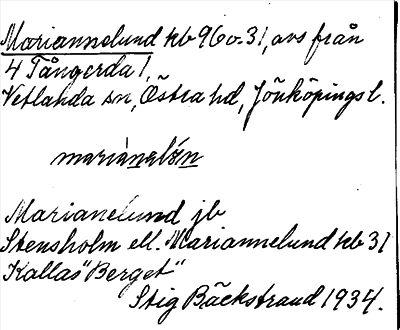 Mariannelund hb 96 o. 31, avs från
4 Tångerda 1,
Vetlanda sn, Östra hd, Jönköpings l.
marià̲nəlún̲
Marianelund jb
Stensholm ell. Mariannelund hb 31
Kallas "Berget"
Stig Bäckstrand 1934.